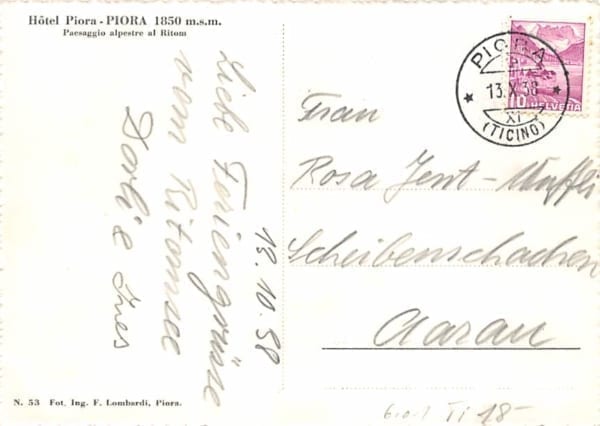 Hôtel Piora - PIORA 1850 m.s.m.
Paesaggio alpestre al Ritom
13.10.38
Liebe Feriengrüsse
vom Ritomsee
Dorli & Ines
PIORA
13.X.38
XI
(TICINO)
10 HELVETIA
Frau
Rosa Jent-
Scheibenschachen
Aarau
N. 53 Fot. Ing. F. Lombardi, Piora.
TI 18-